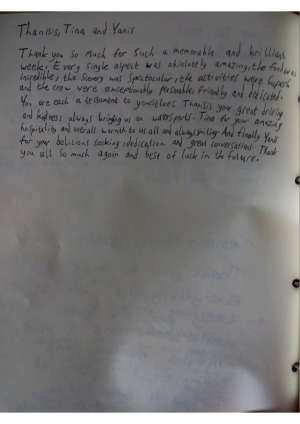 Thanasis, Tina and Yanis
Thank you so much for such a memorable and brilliant
week. Every single aspect was absolutely amazing, the food was
incredible, the scenery was spectacular, the activities were superb
and the crew were unconditionally personable, friendly and dedicated.
You are each a testament to yourselves Thanasis your great driving
and kindness always bringing us on watersports. Tina for your amazing
hospitality and overall warmth to us all and always smiling. And finally Yanis
for your delicious cooking, dedication and great conversation. Thank
you all so much again and best of luck in the future.